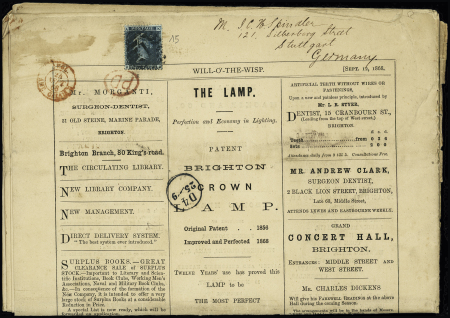 15
M. J. C. H. Spindler
121. Silberburg Street
Stuttgart
Germany
PD
WILL-O'-THE-WISP.
[SEPT. 19, 1868.
Mr. MOROSINI,
SURGEON-DENTIST,
51 OLD STEINE, MARINE PARADE,
BRIGHTON.
Brighton Branch, 80 King's road.
THE CIRCULATING LIBRARY.
NEW LIBRARY COMPANY.
NEW MANAGEMENT.
DIRECT DELIVERY SYSTEM.
"The best system ever introduced."
SURPLUS BOOKS.—GREAT
CLEARANCE SALE OF SURPLUS
STOCK.—Important to Literary and Scientific
Institutions, Book Clubs, Working Mens'
Associations, Naval and Military Book Clubs,
&c.—In consequence of the formation of the
New Company, it is intended to offer a very
large stock of Surplus Books at a considerable
Reduction in Price.
A special List is now ready, which will be
THE LAMP.
Perfection and Economy in Lighting.
PATENT
BRIGHTON
CROWN
LAMP.
Original Patent . . 1856
Improved and Perfected 1868
TWELVE Years' use has proved this
LAMP to be
THE MOST PERFECT
ARTIFICIAL TEETH WITHOUT WIRES OR
FASTENINGS,
Upon a new and painless principle, introduced by
Mr. L. E. STYER,
DENTIST, 15 CRANBOURN ST.,
(Leading from the top of West street,)
BRIGHTON.
Teeth
Sets
Attendance daily from 9 till 5. Consultations Free.
MR. ANDREW CLARK,
SURGEON DENTIST,
2 BLACK LION STREET, BRIGHTON,
Late 63, Middle Street,
ATTENDS LEWES AND EASTBOURNE WEEKLY.
GRAND
CONCERT HALL,
BRIGHTON.
ENTRANCES: MIDDLE STREET AND
WEST STREET.
MR. CHARLES DICKENS
Will give his FAREWELL READINGS at the above
Hall during the coming Season.